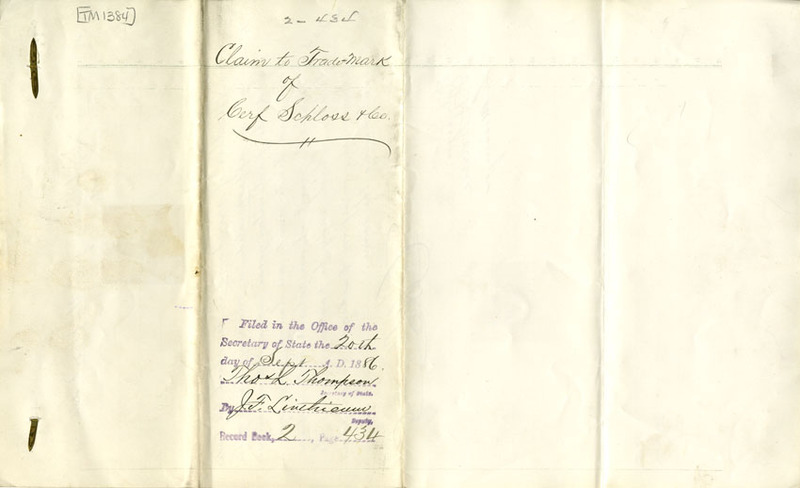 [TM1384]
2-434
Claim to Trade-Mark
of
Cerf Schloss & Co.
Filed in the Office of the
Secretary of State the 20th
day of Sept A. D. 1886.
Thos L. Thompson
Secretary of State.
By J. F. Linthicum
Deputy,
Record Book, 2, Page 434